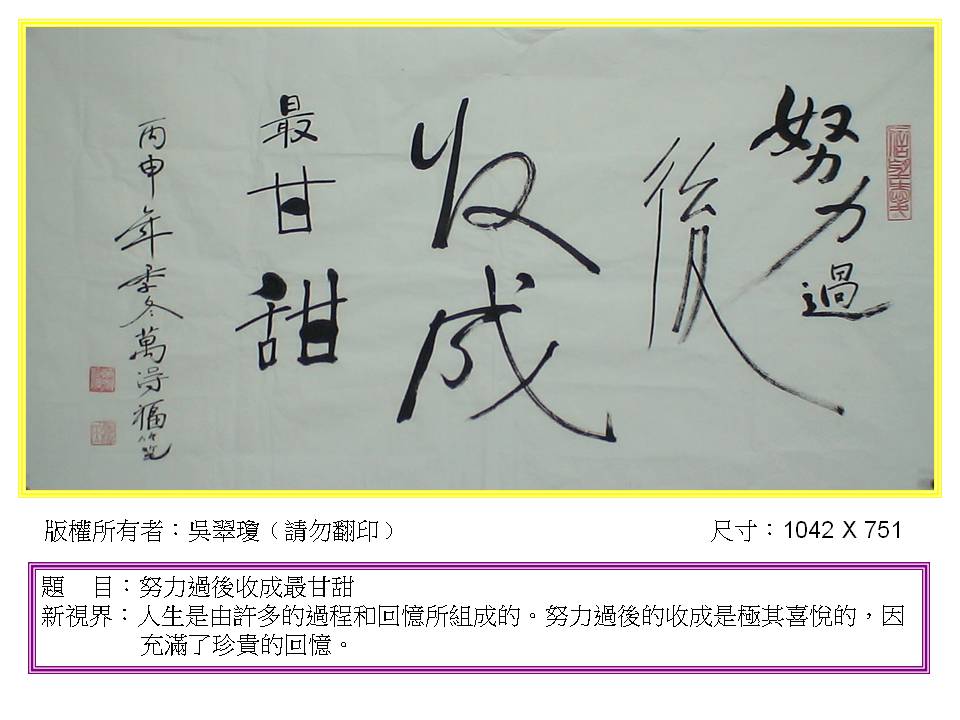 努力過
後
收成
最甘甜
丙申年季冬萬得福筆
版權所有者：吳翠瓊（請勿翻印）
尺寸：1042 X 751
題　目：努力過後收成最甘甜
新視界：人生是由許多的過程和回憶所組成的。努力過後的收成是極其喜悅的，因
充滿了珍貴的回憶。